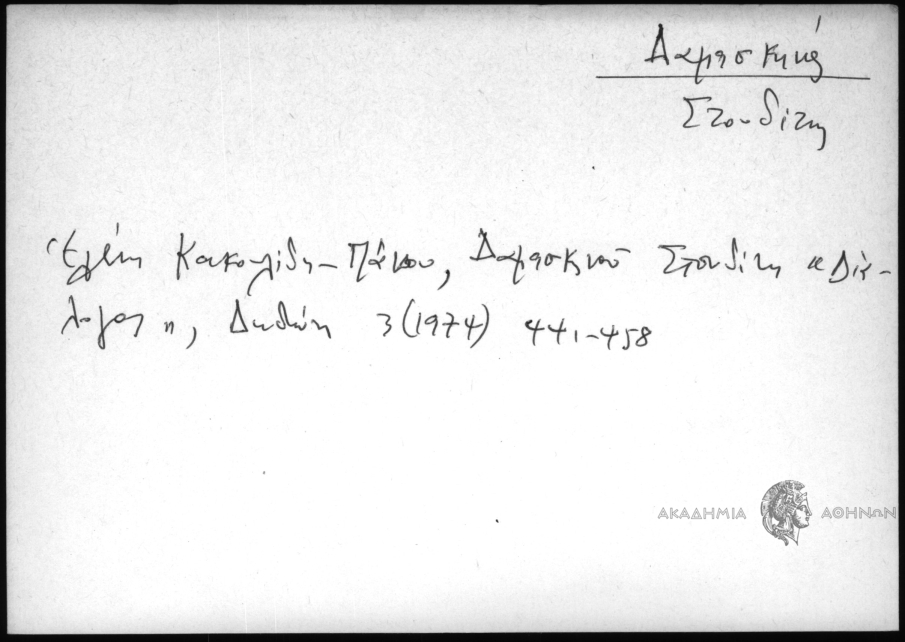 Δαμασκηνός
Στουδίτης
Ἑλένη Κακουλίδη-Πάνου, Δαμασκηνοῦ Στουδίτη «Διά-
λογος», Δωδώνη 3 (1974) 441-458
ΑΚΑΔΗΜΙΑ ΑΘΗΝΩΝ